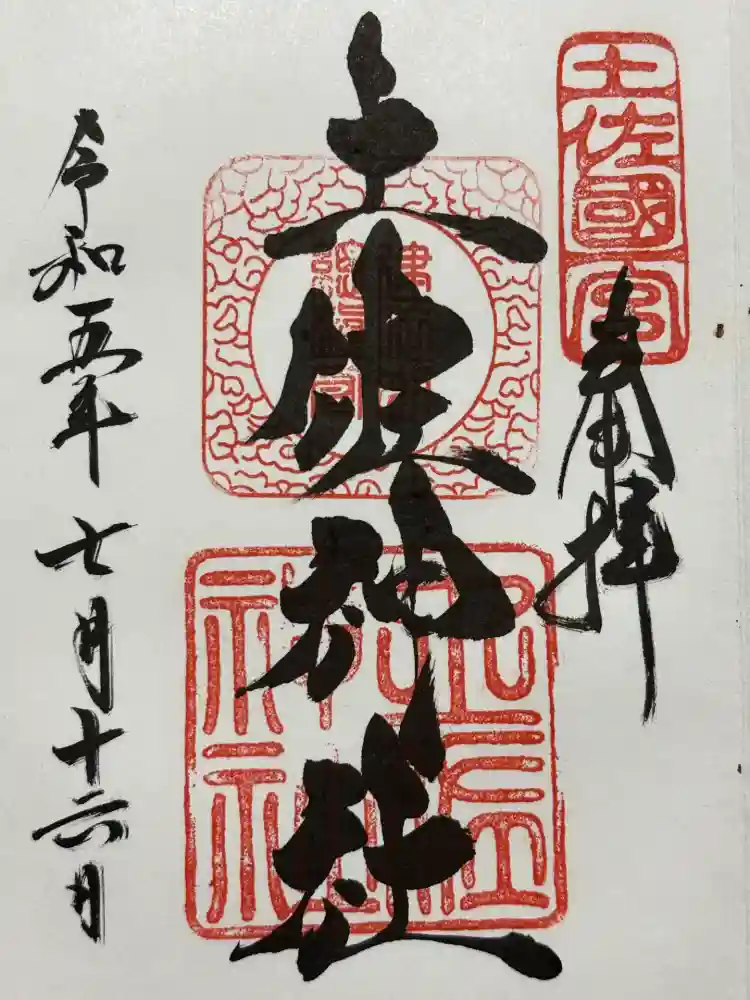 土佐國一宮
奉拝
土佐神社
土佐神社
令和五年七月十六日